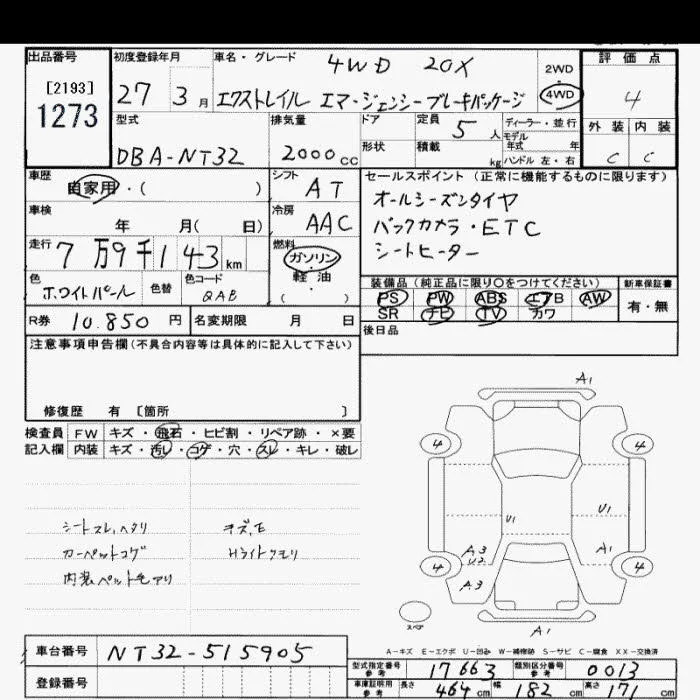 出品番号 初度登録年月 車名・グレード 4WD 20X 2WD・4WD 評価点
[2193]
1273
27 3月 エクストレイル エマージェンシーブレーキパッケージ 4
型式 排気量 ドア 定員 5人 ディーラー・並行 外装 内装
DBA-NT32 2000cc 形状 積載 kg モデル年式 年 ハンドル 左・右 C C
車歴 シフト セールスポイント(正常に機能するものに限ります)
自家用・( ) AT オールシーズンタイヤ
車検 冷房 バックカメラ・ETC
年 月(日) AAC シートヒーター
走行 7万9千143km 燃料 ガソリン・軽油 ( )
色 ホワイトパール 色替 色コード QAB
装備品(純正品に限り○をつけてください) 新車保証書
PS PW ABS エアB AW 有・無
SR ナビ TV カワ
R券 10.850円 名変期限 月 日 後日品
注意事項申告欄(不具合内容等は具体的に記入して下さい)
修復歴 有 [箇所 ]
検査員 FW キズ・飛石・ヒビ割・リペア跡・×要
記入欄 内装 キズ・汚レ・コゲ・穴・スレ・キレ・破レ
シートスレ,ヘタリ キズ,E
カーペットコゲ Hライトクモリ
内装ペット毛アリ
A1
4 4
U1 U1
A3 A1
U2
4 4
A3
スペア
A1
A-キズ E-エクボ U-凹み W-補修跡 S-サビ C-腐食 XX-交換済
車台番号 NT32-515905
型式指定番号 参考 17663 類別区分番号 参考 0013
登録番号
車庫証明用 参考 長さ 464cm 幅 182cm 高さ 171cm